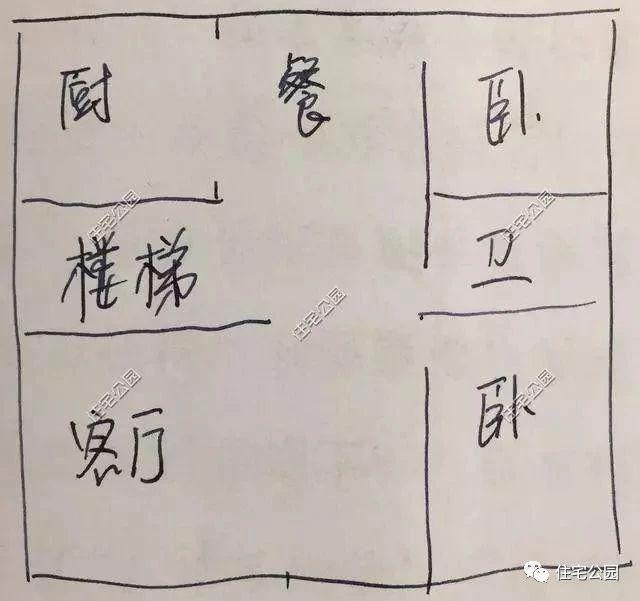 厨 餐 卧
住宅公园 住宅公园
楼梯 卫
住宅公园
住宅公园 住宅公园
客厅 卧
住宅公园